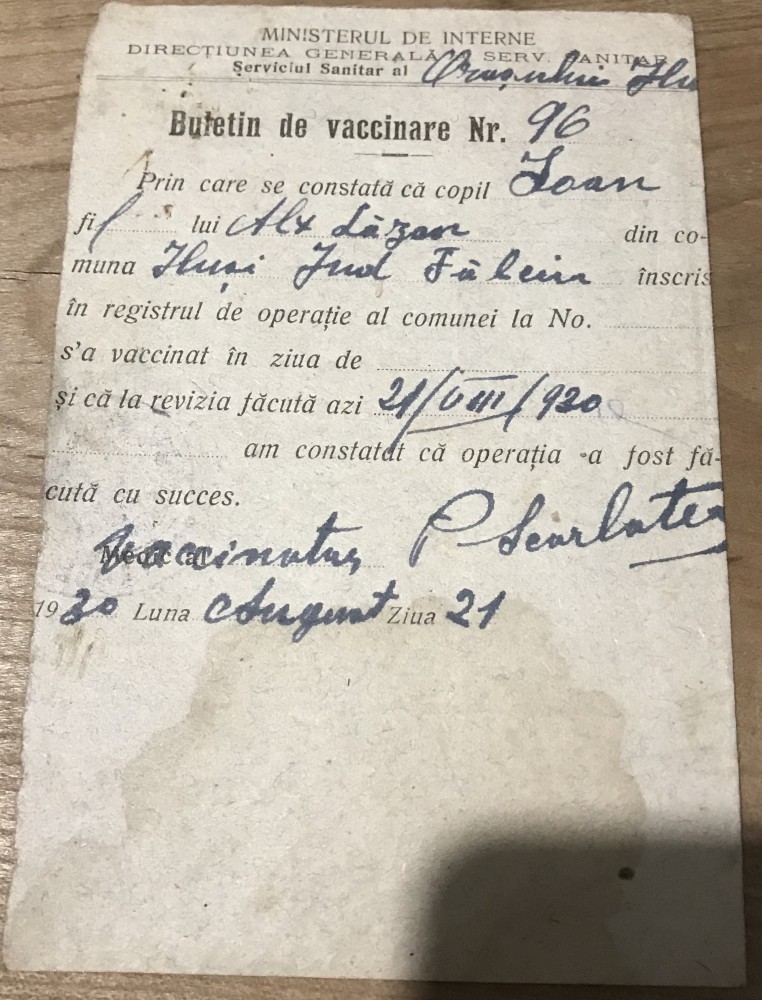 MINISTERUL DE INTERNE
DIRECȚIUNEA GENERALĂ A SERV. SANITAR
Serviciul Sanitar al Orașului Hu
Buletin de vaccinare Nr. 96
Prin care se constată că copil Ioan
fil lui Alx Lăzan din co-
muna Huși Jud Fălciu înscris
în registrul de operație al comunei la No.
s'a vaccinat în ziua de
și că la revizia făcută azi 21/VIII/920
am constatat că operația a fost fă-
cută cu succes.
Vaccinator P Scarlatescu
1920 Luna August Ziua 21